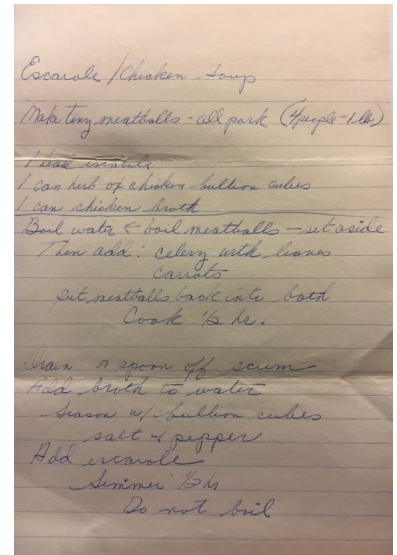 Escarole/Chicken Soup
Make tiny meatballs - all pork (4 people - 1 lb)
1 head escarole
1 can herb of chicken bullion cubes
1 can chicken broth
Boil water & boil meatballs - set aside
Then add: celery with leaves
carrots
Put meatballs back into bath
Cook 1/2 hr.
Drain or spoon off scum
Add broth to water
Season w/ bullion cubes
salt & pepper
Add escarole
Simmer 1/2 hr
Do not boil